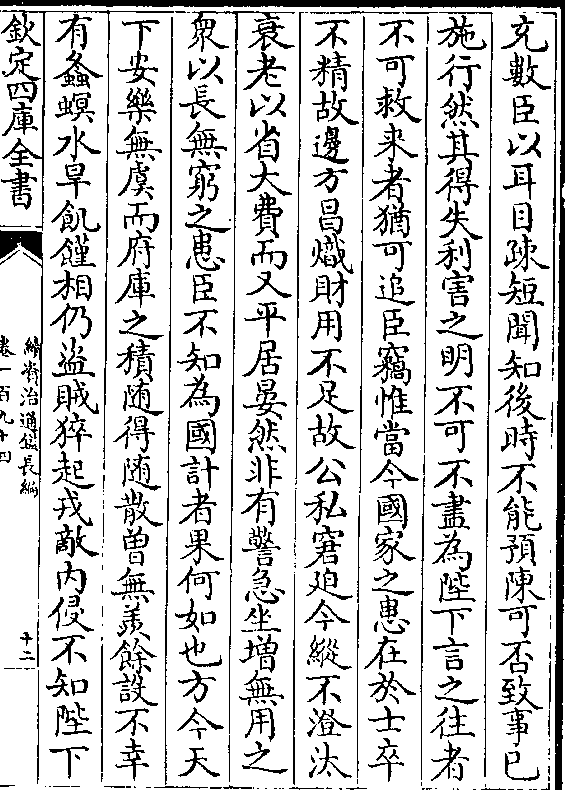 充數臣以耳目疎短聞知後時不能預陳可否致事已
施行然其得失利害之明不可不盡為陛下言之往者
不可救来者猶可追臣竊惟當今國家之患在於士卒
不精故邊方昌熾財用不足故公私窘廹今縱不澄汰
衰老以省大費而又平居晏然非有警急坐増無用之
衆以長無窮之患臣不知為國計者果何如也方今天
下安樂無虞而府庫之積随得随散曽無羨餘設不幸
有螽螟水旱飢饉相仍盗賊猝起戎敵内侵不知陛下
欽定四庫全書
續資治通鑑長編
卷一百九十四
十二